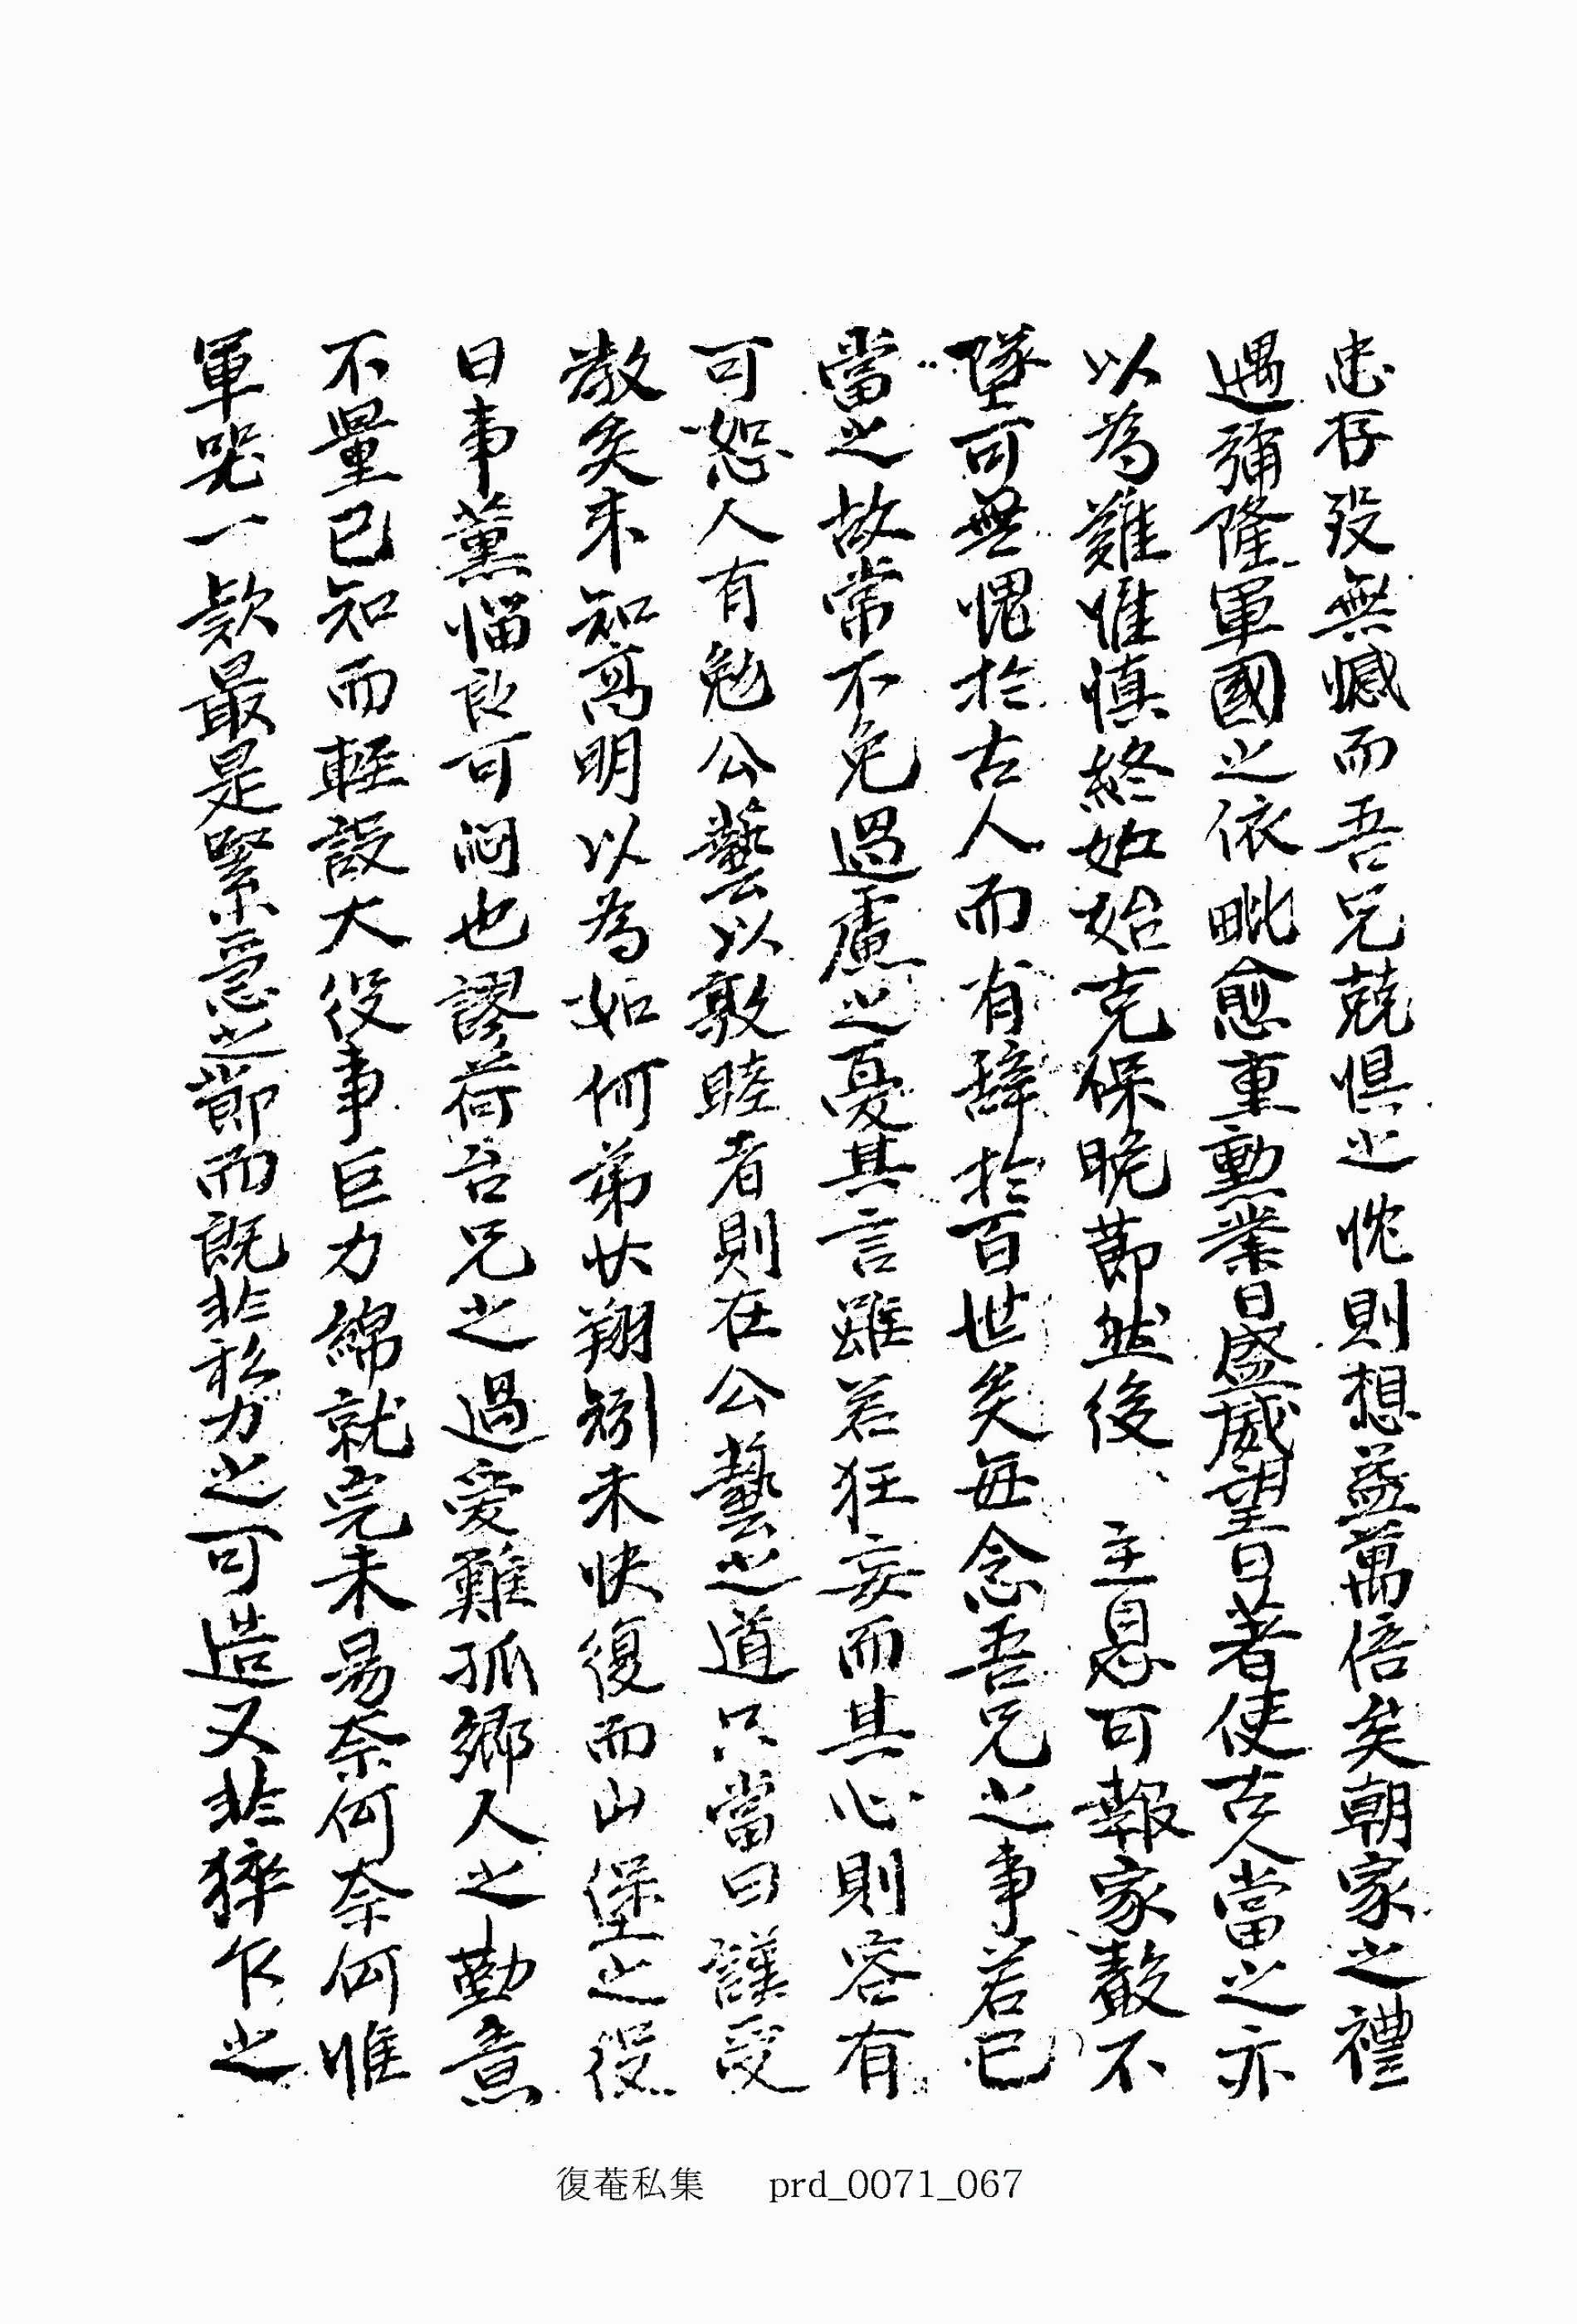 忠存歿無憾而吾兄兢惧之忱則想益萬倍矣朝家之禮
遇彌隆軍國之依毗愈重勳業日盛威望日著使古人當之亦
以為難惟慎終如始克保晚節然後 主恩可報家聲不
墜可無愧於古人而有辭於百世矣每念吾兄之事若已
當之故常不免過慮之憂其言雖若狂妄而其心則容有
可恕人有勉公藝以敦睦者則在公藝之道只當曰謹受
教矣未知高明以為如何弟狀朔劬未快復而山堡之役
日事薰惱良可悶也謬荷台兄之過愛難孤鄉人之勤意
不量已知而輕設大役事巨力綿就完未易奈何奈何惟
軍器一款最是緊急之節而既非私力之可造又非猝乍之